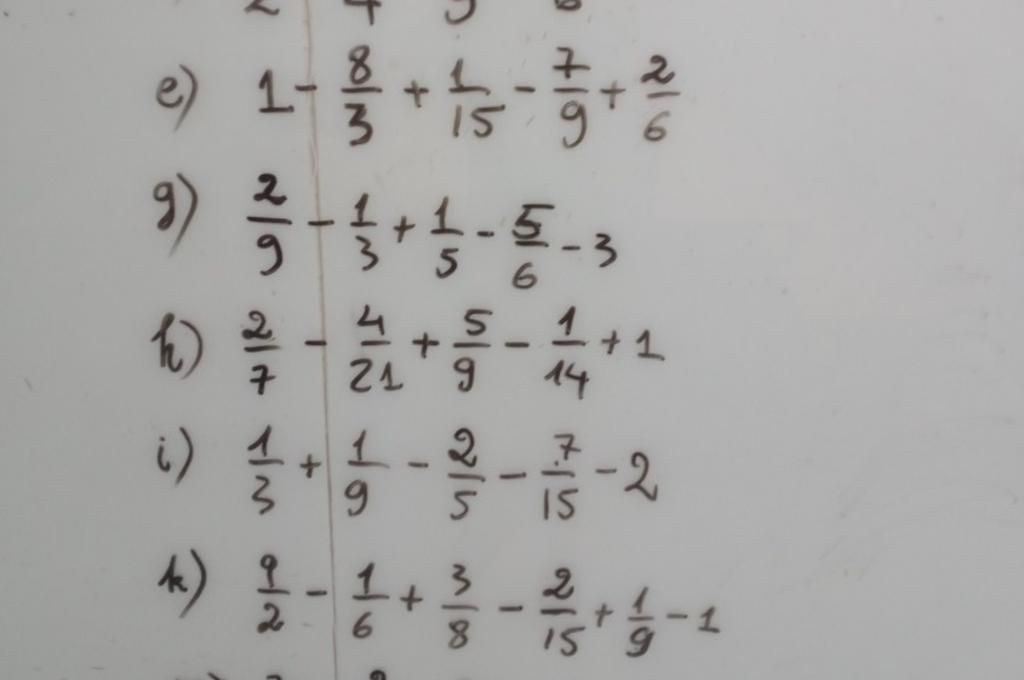 e) 1 - 8/3 + 1/15 - 7/9 + 2/6
g) 2/9 - 1/3 + 1/5 - 5/6 - 3
h) 2/7 - 4/21 + 5/9 - 1/14 + 1
i) 1/3 + 1/9 - 2/5 - 7/15 - 2
k) 9/2 - 1/6 + 3/8 - 2/15 + 1/9 - 1